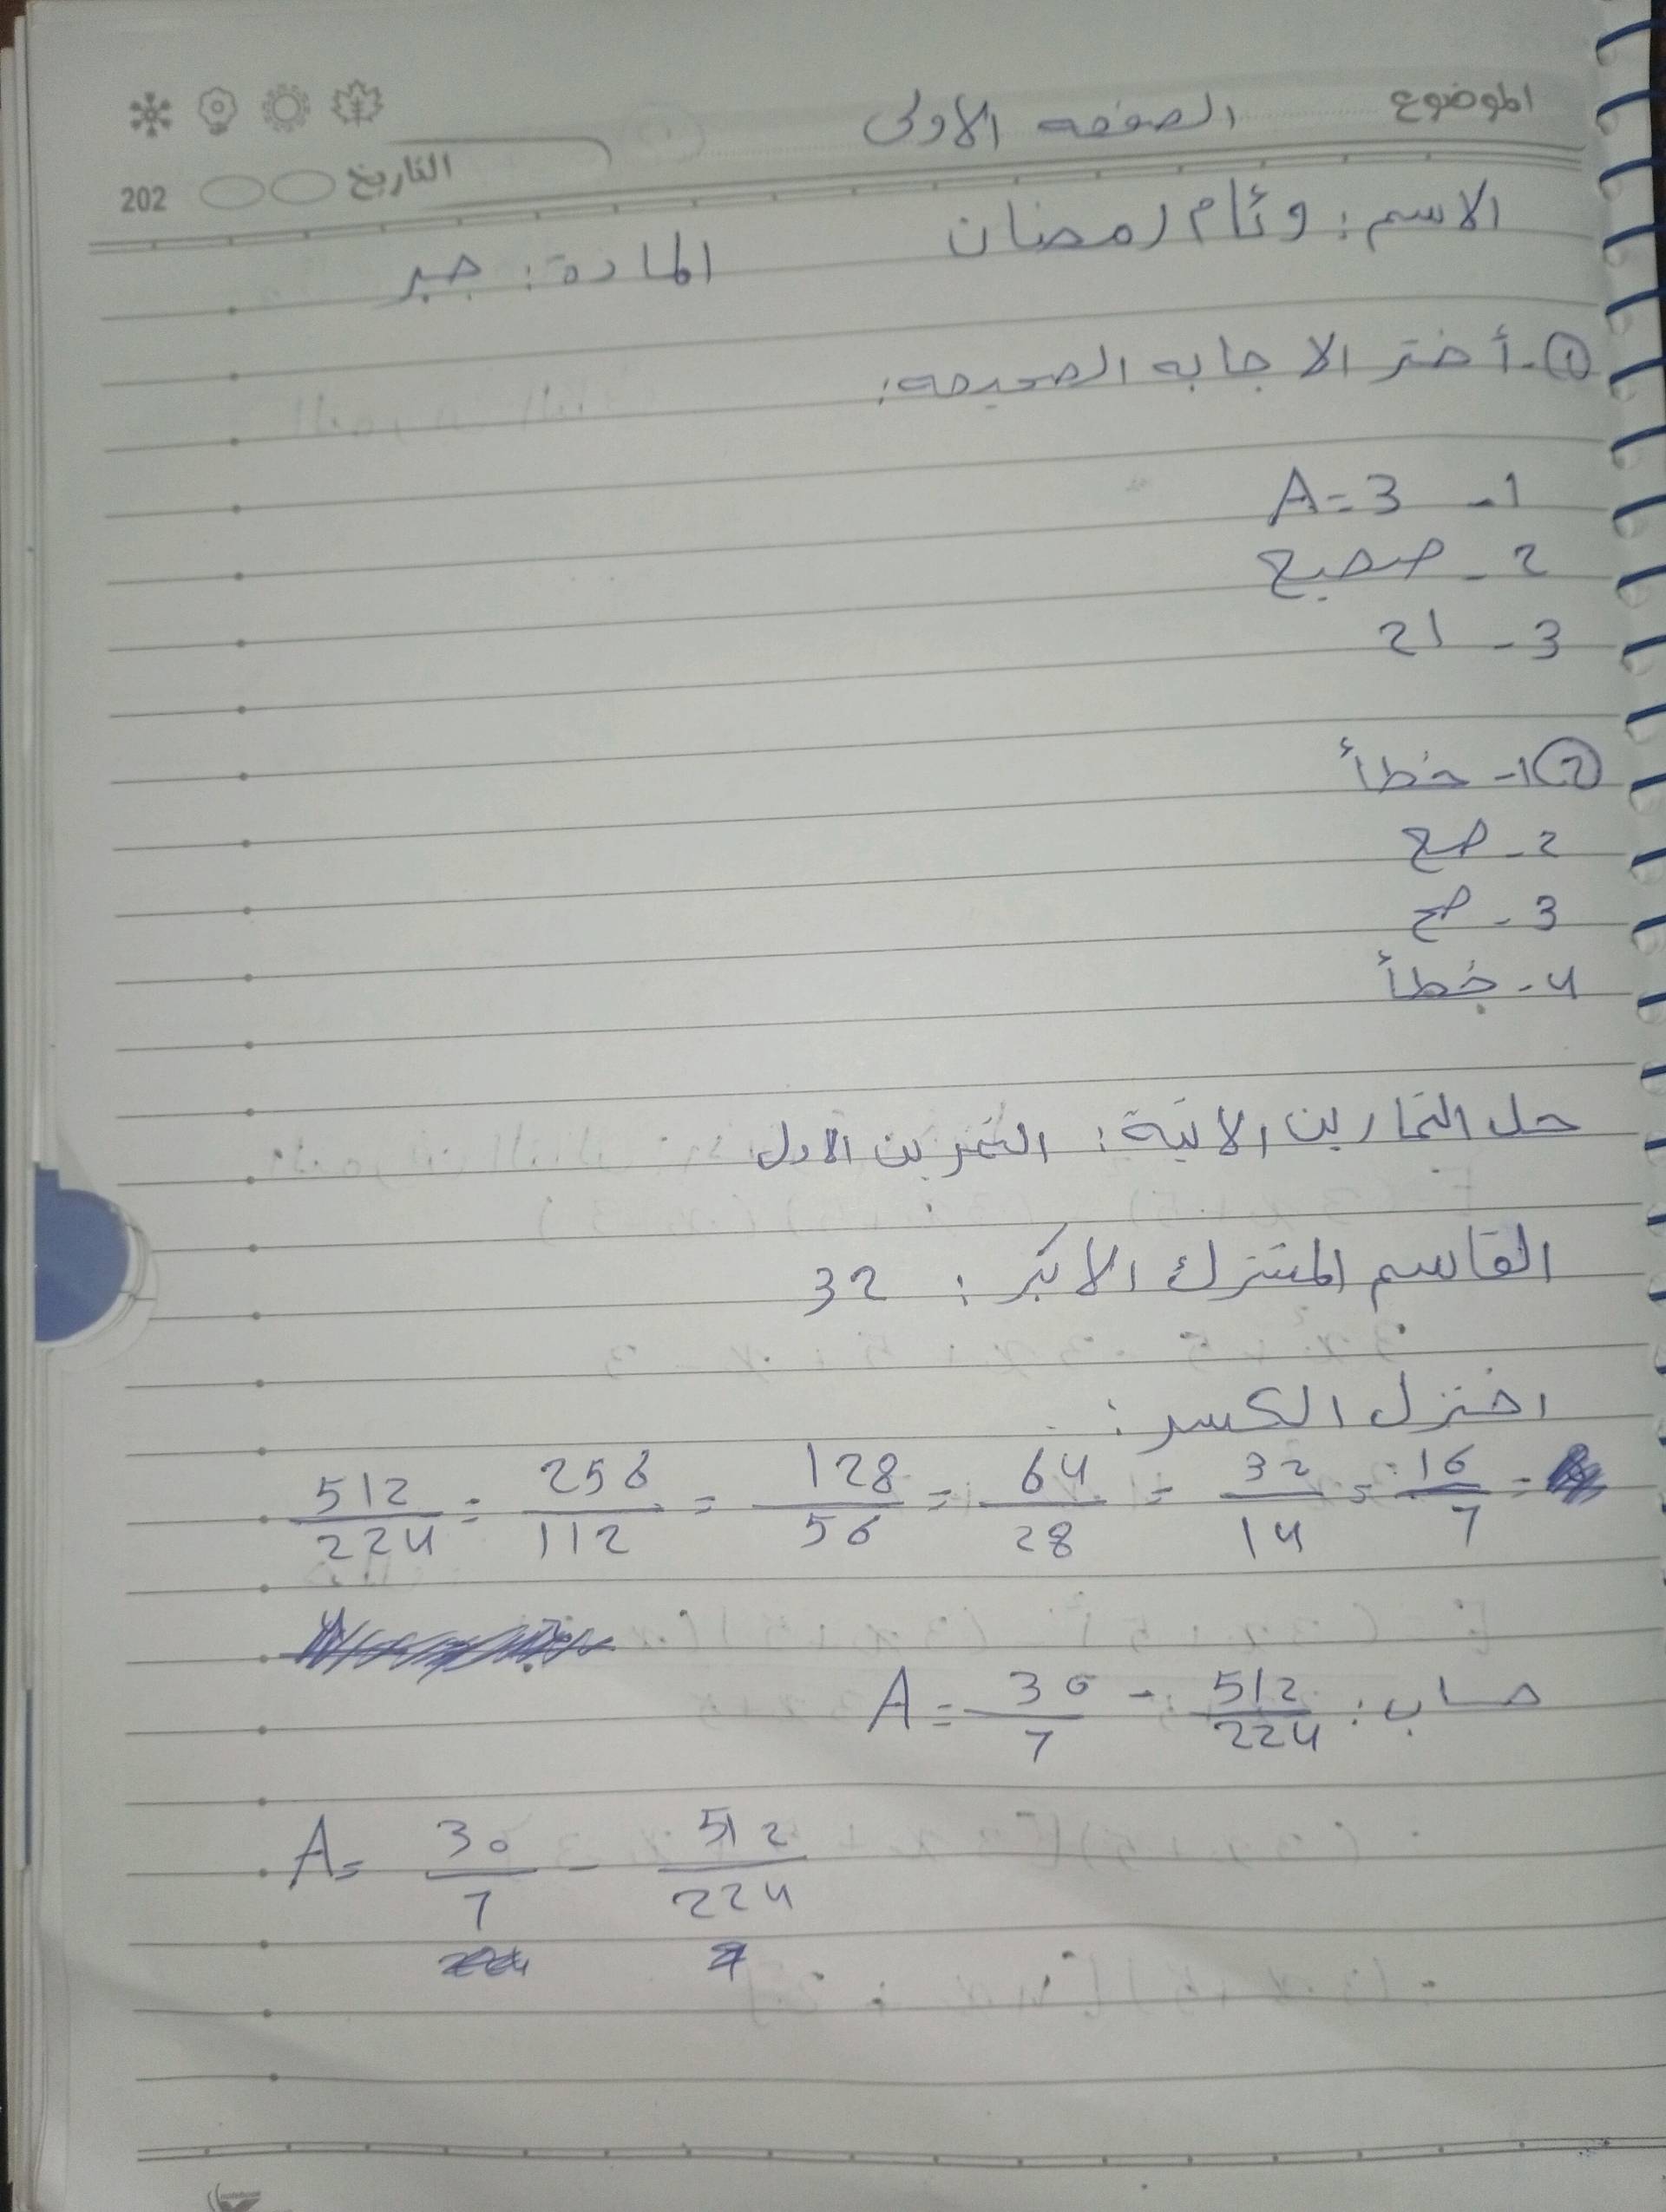 الموضوع الصفحه الاولى
التاريخ 202
الاسم: وئام رمضان المادة: جبر
① - أختر الاجابه الصحيحه:
1 - A = 3
2 - صحيح
3 - 21
② 1 - خطأ
2 - صح
3 - صح
4 - خطأ
حل التمارين الاتية: التمرين الاول
القاسم المشترك الاكبر: 32
اختزل الكسر:
512/224 = 256/112 = 128/56 = 64/28 = 32/14 = 16/7 =
حساب: A = 30/7 - 512/224
A = 30/7 - 512/224
notebook